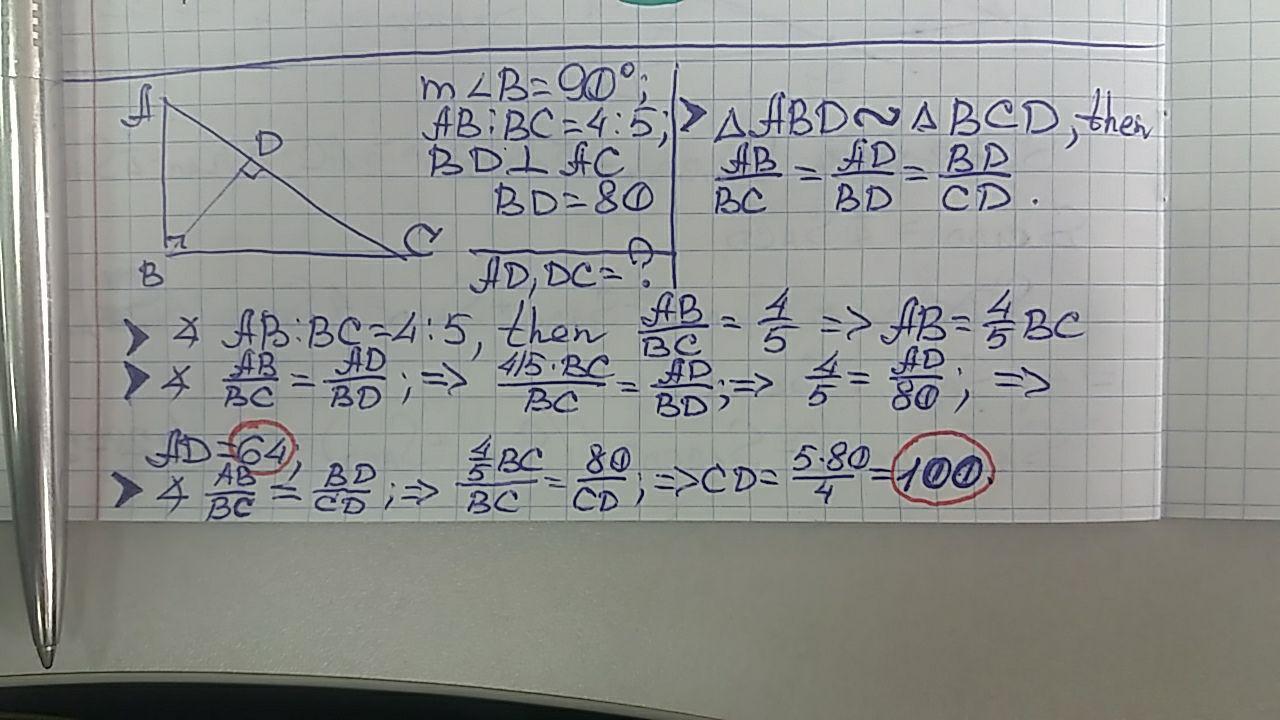 A
D
B
C
m∠B=90°;
AB:BC=4:5;
BD⊥AC
BD=80
AD, DC=?
➤ △ABD~△BCD, then
AB/BC = AD/BD = BD/CD.
➤ ∡ AB:BC=4:5, then AB/BC = 4/5 => AB=4/5 BC
➤ ∡ AB/BC = AD/BD; => 4/5·BC/BC = AD/BD; => 4/5 = AD/80; =>
AD=64;
➤ ∡ AB/BC = BD/CD; => 4/5 BC/BC = 80/CD; => CD= 5·80/4 =100.